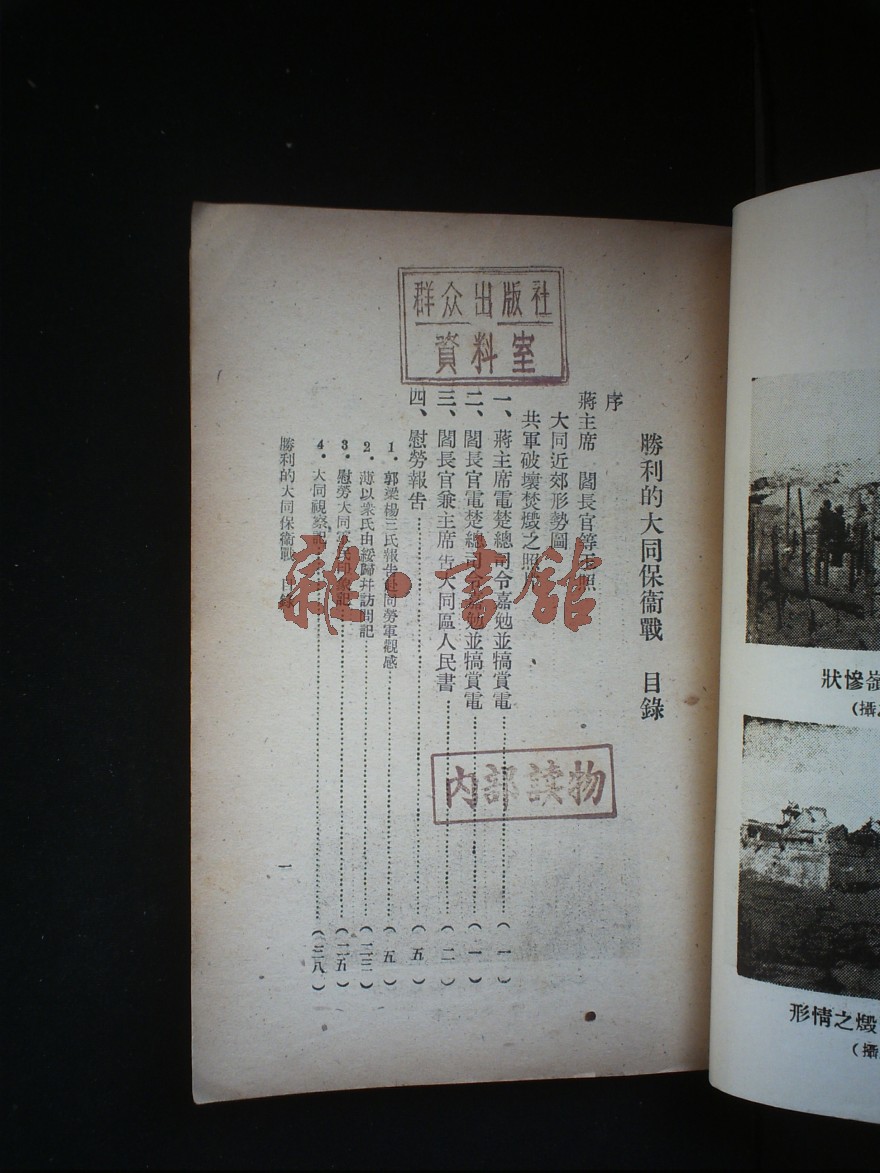 群众出版社
資料室
勝利的大同保衞戰 目錄
序
蔣主席 閻長官等玉照
大同近郊形勢圖
共軍破壞焚燬之照片
一、蔣主席電楚總司令嘉勉並犒賞電……(一)
二、閻長官電楚總司令嘉勉並犒賞電……(一)
三、閻長官兼主席告大同區人民書……(二)
四、慰勞報告……(五)
1．郭梁楊三氏報告赴同勞軍觀感……(五)
2．薄以衆氏由綏歸井訪問記……(二二)
3．慰勞大同軍民……記……(二五)
4．大同視察記……(三八)
勝利的大同保衞戰 目錄
一
内部读物
雜·書館
嶺慘狀
(攝
燬之情形
(攝